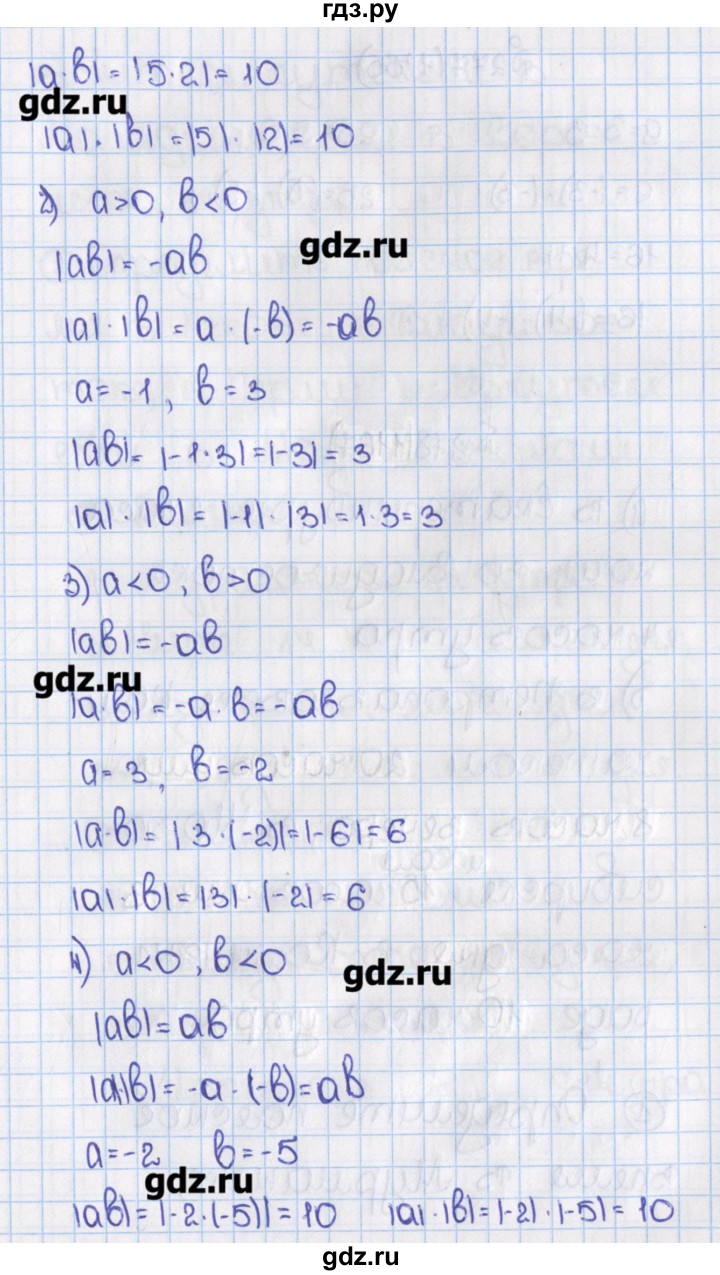 гдз.ру
|a·b| = |5·2| = 10
gdz.ru
|a|·|b| = |5|·|2| = 10
2) a>0, b<0
gdz.ru
|ab| = -ab
|a|·|b| = a·(-b) = -ab
a = -1, b = 3
|ab| = |-1·3| = |-3| = 3
|a|·|b| = |-1|·|3| = 1·3 = 3
3) a<0, b>0
|ab| = -ab
gdz.ru
|a·b| = -a·b = -ab
a = 3, b = -2
|a·b| = |3·(-2)| = |-6| = 6
|a|·|b| = |3|·|-2| = 6
4) a<0, b<0
gdz.ru
|ab| = ab
|a|·|b| = -a·(-b) = ab
a = -2 b = -5
gdz.ru
|ab| = |-2·(-5)| = 10 |a|·|b| = |-2|·|-5| = 10
gdz.ru